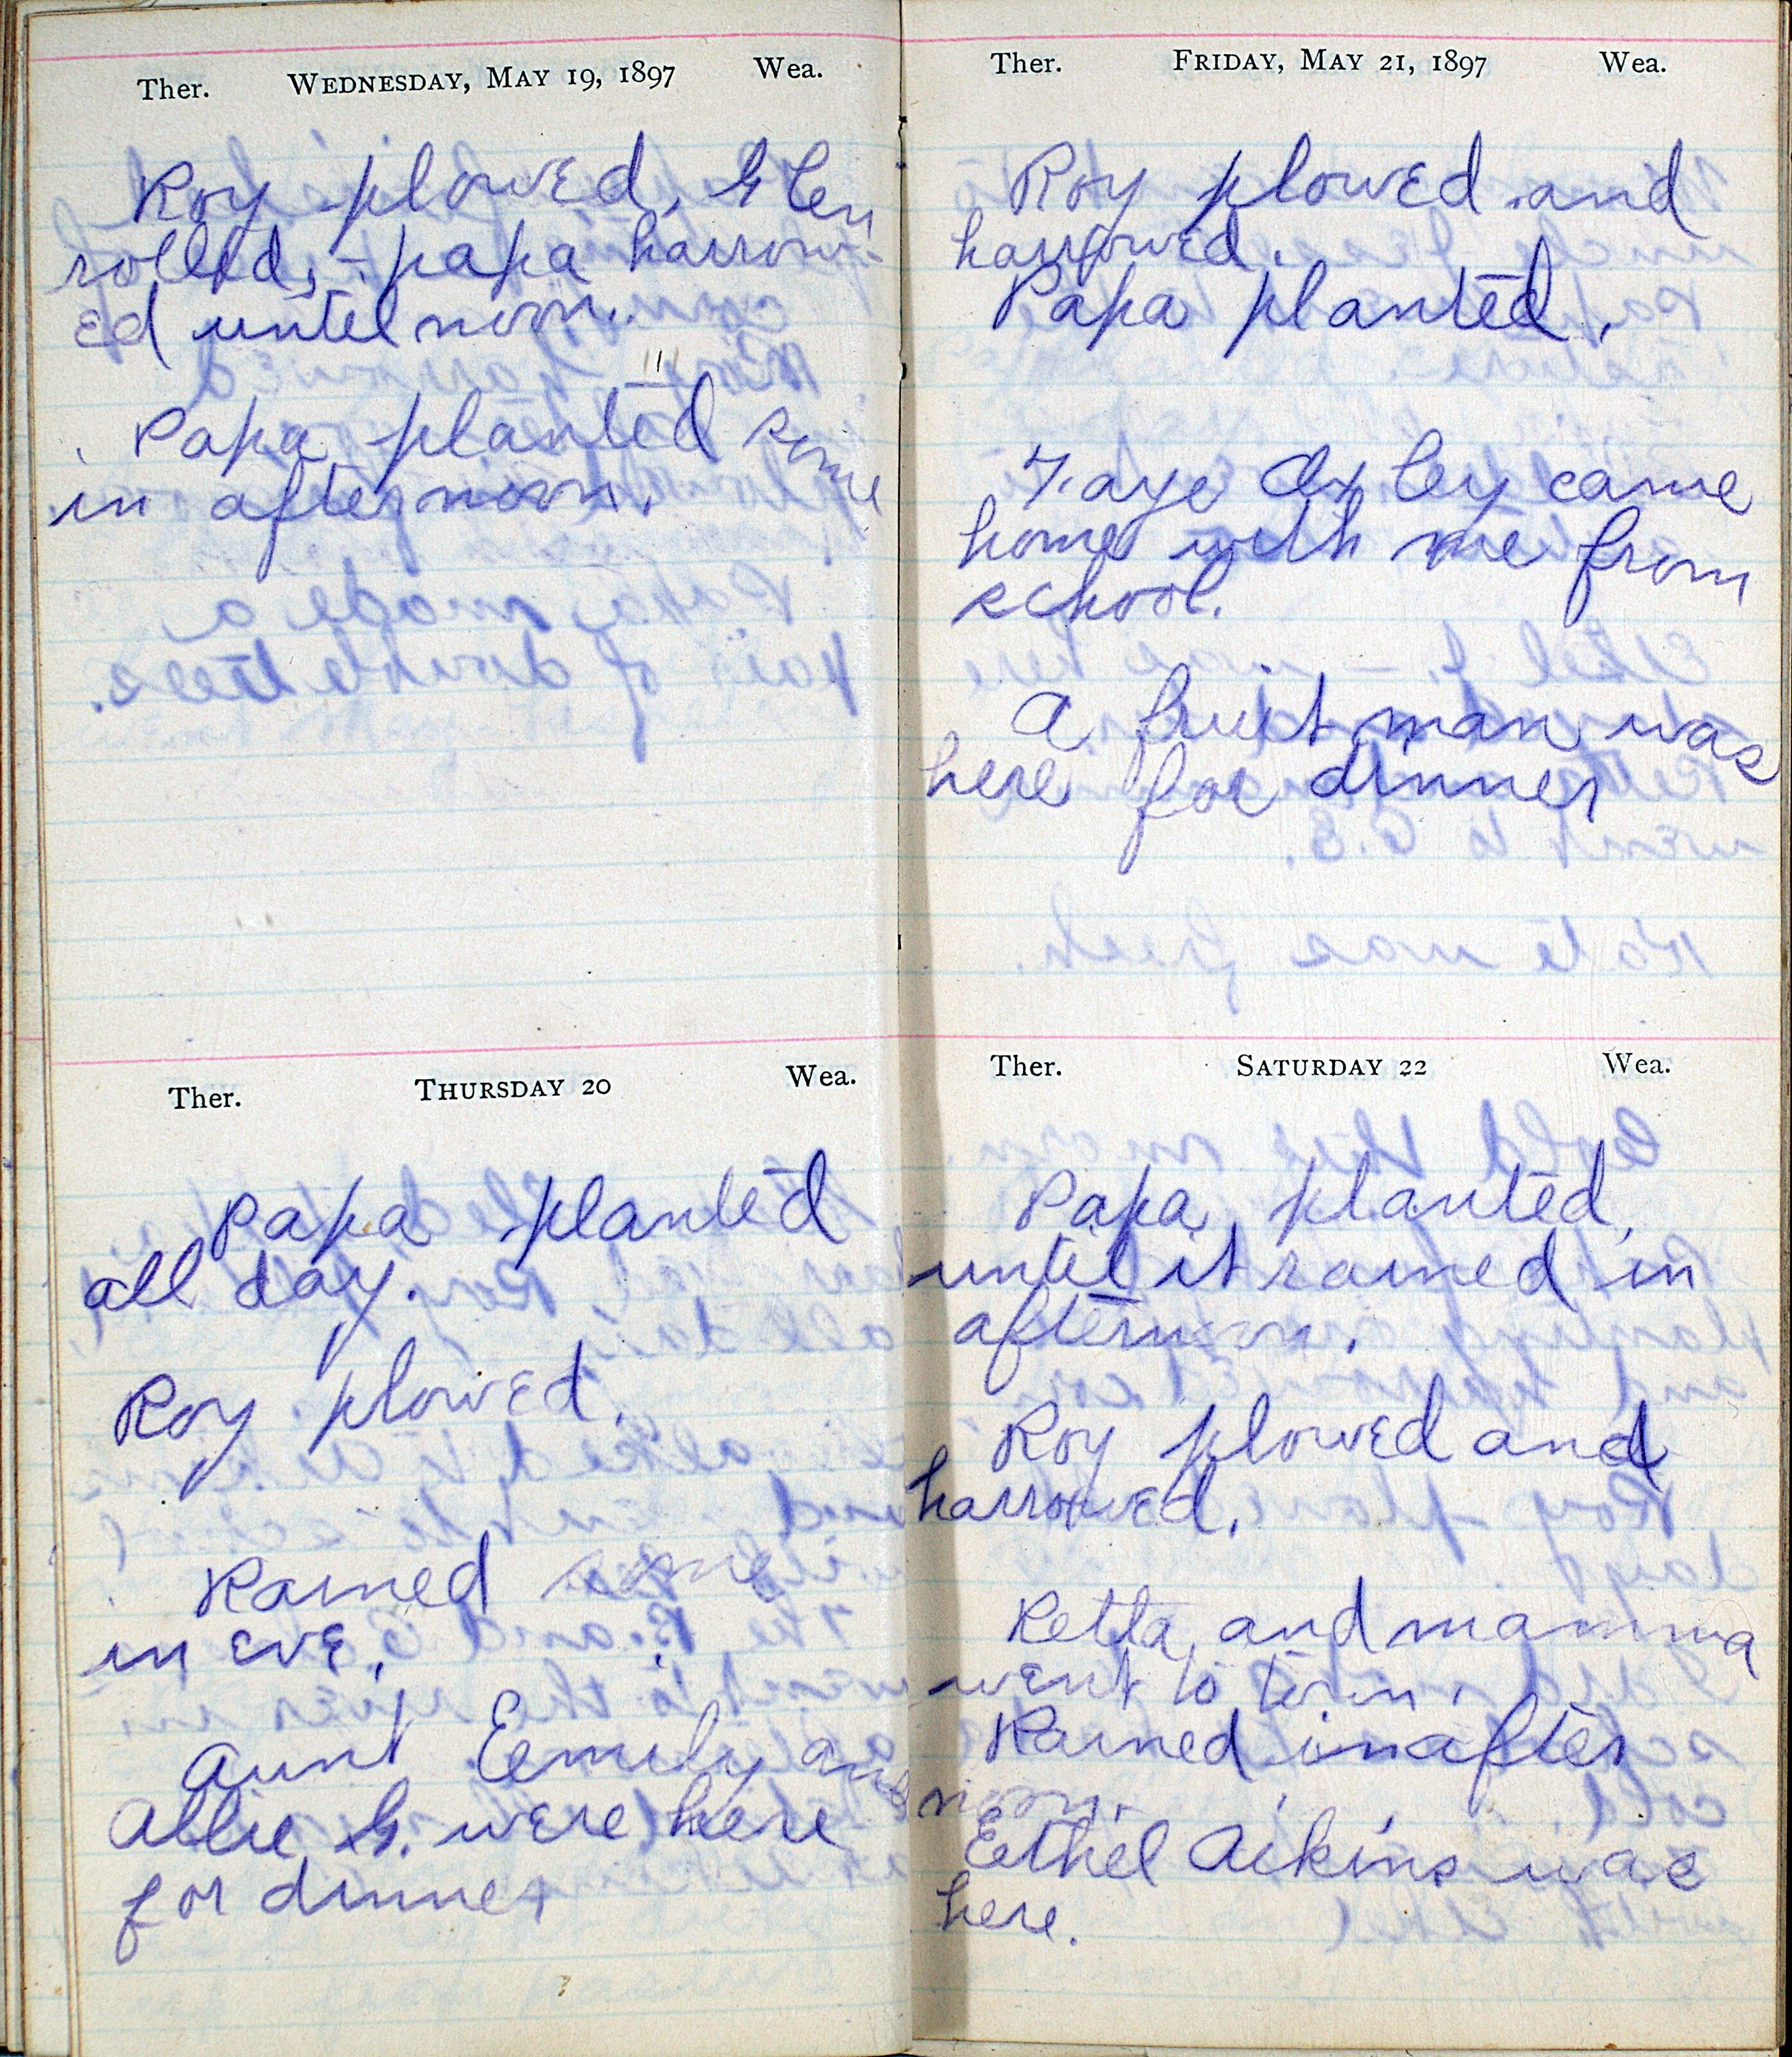 Ther. WEDNESDAY, MAY 19, 1897 Wea.
Roy plowed, Glen
rolled, - papa harrow-
ed until noon.
Papa planted some
in afternoon.
Ther. THURSDAY 20 Wea.
Papa planted
all day.
Roy plowed.
Rained some
in eve.
Aunt Eemily and
Allie G. were here
for dinner
Ther. FRIDAY, MAY 21, 1897 Wea.
Roy plowed and
harrowed.
Papa planted.
Faye Oxley came
home with me from
school.
A fruit man was
here for dinner
Ther. SATURDAY 22 Wea.
Papa planted
until it rained in
afternoon.
Roy plowed and
harrowed.
Retta and mamma
went to town.
Rained in after
noon.
Ethel Aikins was
here.